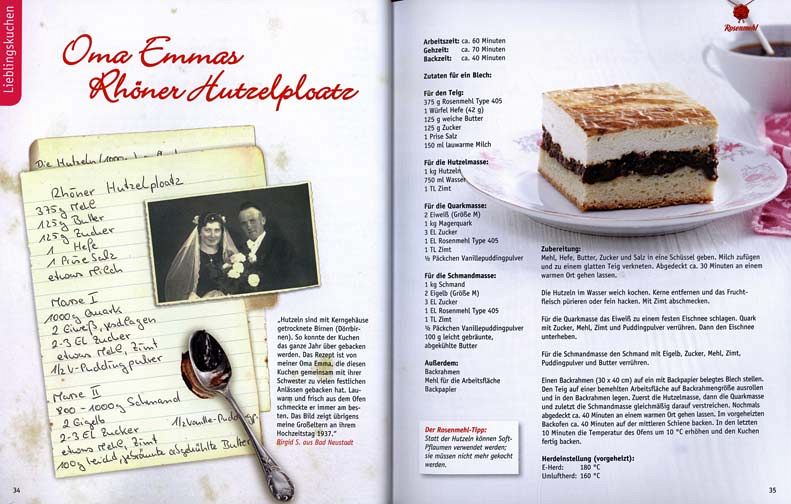 Lieblingskuchen
Oma Emmas
Rhöner Hutzelploatz
Die Hutzeln
Rhöner Hutzelploatz
375g Mehl
125g Butter
125g Zucker
1 Hefe
1 Prise Salz
etwas Milch
Masse I
1000g Quark
2 Eiweiß,
2-3 EL Zucker
etwas Mehl, Zimt
1/2 V-Puddingpulver
Masse II
800 - 1000g Schmand
2 Eigelb
2-3 EL Zucker
1/2 Vanille-Puddingp.
etwas Mehl, Zimt
100g leicht gebräunte abgekühlte Butter
„Hutzeln sind mit Kerngehäuse
getrocknete Birnen (Dörrbir-
nen). So konnte der Kuchen
das ganze Jahr über gebacken
werden. Das Rezept ist von
meiner Oma Emma, die diesen
Kuchen gemeinsam mit ihrer
Schwester zu vielen festlichen
Anlässen gebacken hat. Lau-
warm und frisch aus dem Ofen
schmeckte er immer am bes-
ten. Das Bild zeigt übrigens
meine Großeltern an ihrem
Hochzeitstag 1937.“
Birgid S. aus Bad Neustadt
34
Rosenmehl
Arbeitszeit: ca. 60 Minuten
Gehzeit: ca. 70 Minuten
Backzeit: ca. 40 Minuten
Zutaten für ein Blech:
Für den Teig:
375 g Rosenmehl Type 405
1 Würfel Hefe (42 g)
125 g weiche Butter
125 g Zucker
1 Prise Salz
150 ml lauwarme Milch
Für die Hutzelmasse:
1 kg Hutzeln
750 ml Wasser
1 TL Zimt
Für die Quarkmasse:
2 Eiweiß (Größe M)
1 kg Magerquark
3 EL Zucker
1 EL Rosenmehl Type 405
1 TL Zimt
½ Päckchen Vanillepuddingpulver
Für die Schmandmasse:
1 kg Schmand
2 Eigelb (Größe M)
3 EL Zucker
1 EL Rosenmehl Type 405
1 TL Zimt
½ Päckchen Vanillepuddingpulver
100 g leicht gebräunte,
abgekühlte Butter
Außerdem:
Backrahmen
Mehl für die Arbeitsfläche
Backpapier
Der Rosenmehl-Tipp:
Statt der Hutzeln können Soft-
Pflaumen verwendet werden;
sie müssen nicht mehr gekocht
werden.
Zubereitung:
Mehl, Hefe, Butter, Zucker und Salz in eine Schüssel geben. Milch zufügen
und zu einem glatten Teig verkneten. Abgedeckt ca. 30 Minuten an einem
warmen Ort gehen lassen.
Die Hutzeln im Wasser weich kochen. Kerne entfernen und das Frucht-
fleisch pürieren oder fein hacken. Mit Zimt abschmecken.
Für die Quarkmasse das Eiweiß zu einem festen Eischnee schlagen. Quark
mit Zucker, Mehl, Zimt und Puddingpulver verrühren. Dann den Eischnee
unterheben.
Für die Schmandmasse den Schmand mit Eigelb, Zucker, Mehl, Zimt,
Puddingpulver und Butter verrühren.
Einen Backrahmen (30 x 40 cm) auf ein mit Backpapier belegtes Blech stellen.
Den Teig auf einer bemehlten Arbeitsfläche auf Backrahmengröße ausrollen
und in den Backrahmen legen. Zuerst die Hutzelmasse, dann die Quarkmasse
und zuletzt die Schmandmasse gleichmäßig darauf verstreichen. Nochmals
abgedeckt ca. 40 Minuten an einem warmen Ort gehen lassen. Im vorgeheizten
Backofen ca. 40 Minuten auf der mittleren Schiene backen. In den letzten
10 Minuten die Temperatur des Ofens um 10 °C erhöhen und den Kuchen
fertig backen.
Herdeinstellung (vorgeheizt):
E-Herd: 180 °C
Umluftherd: 160 °C
35